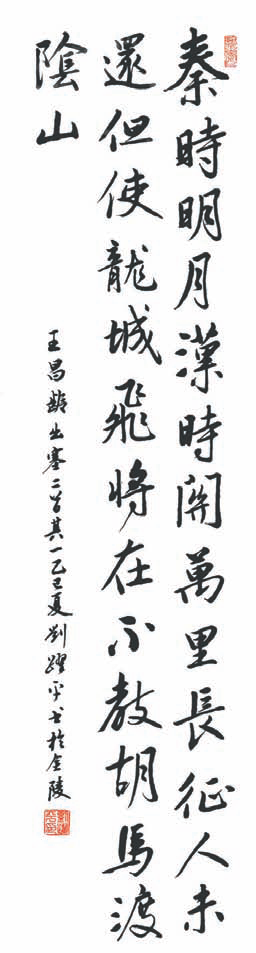 秦時明月漢時關萬里長征人未
還但使龍城飛將在不教胡馬渡
陰山
王昌齡出塞二首其一乙巳夏劉躍平書於金陵